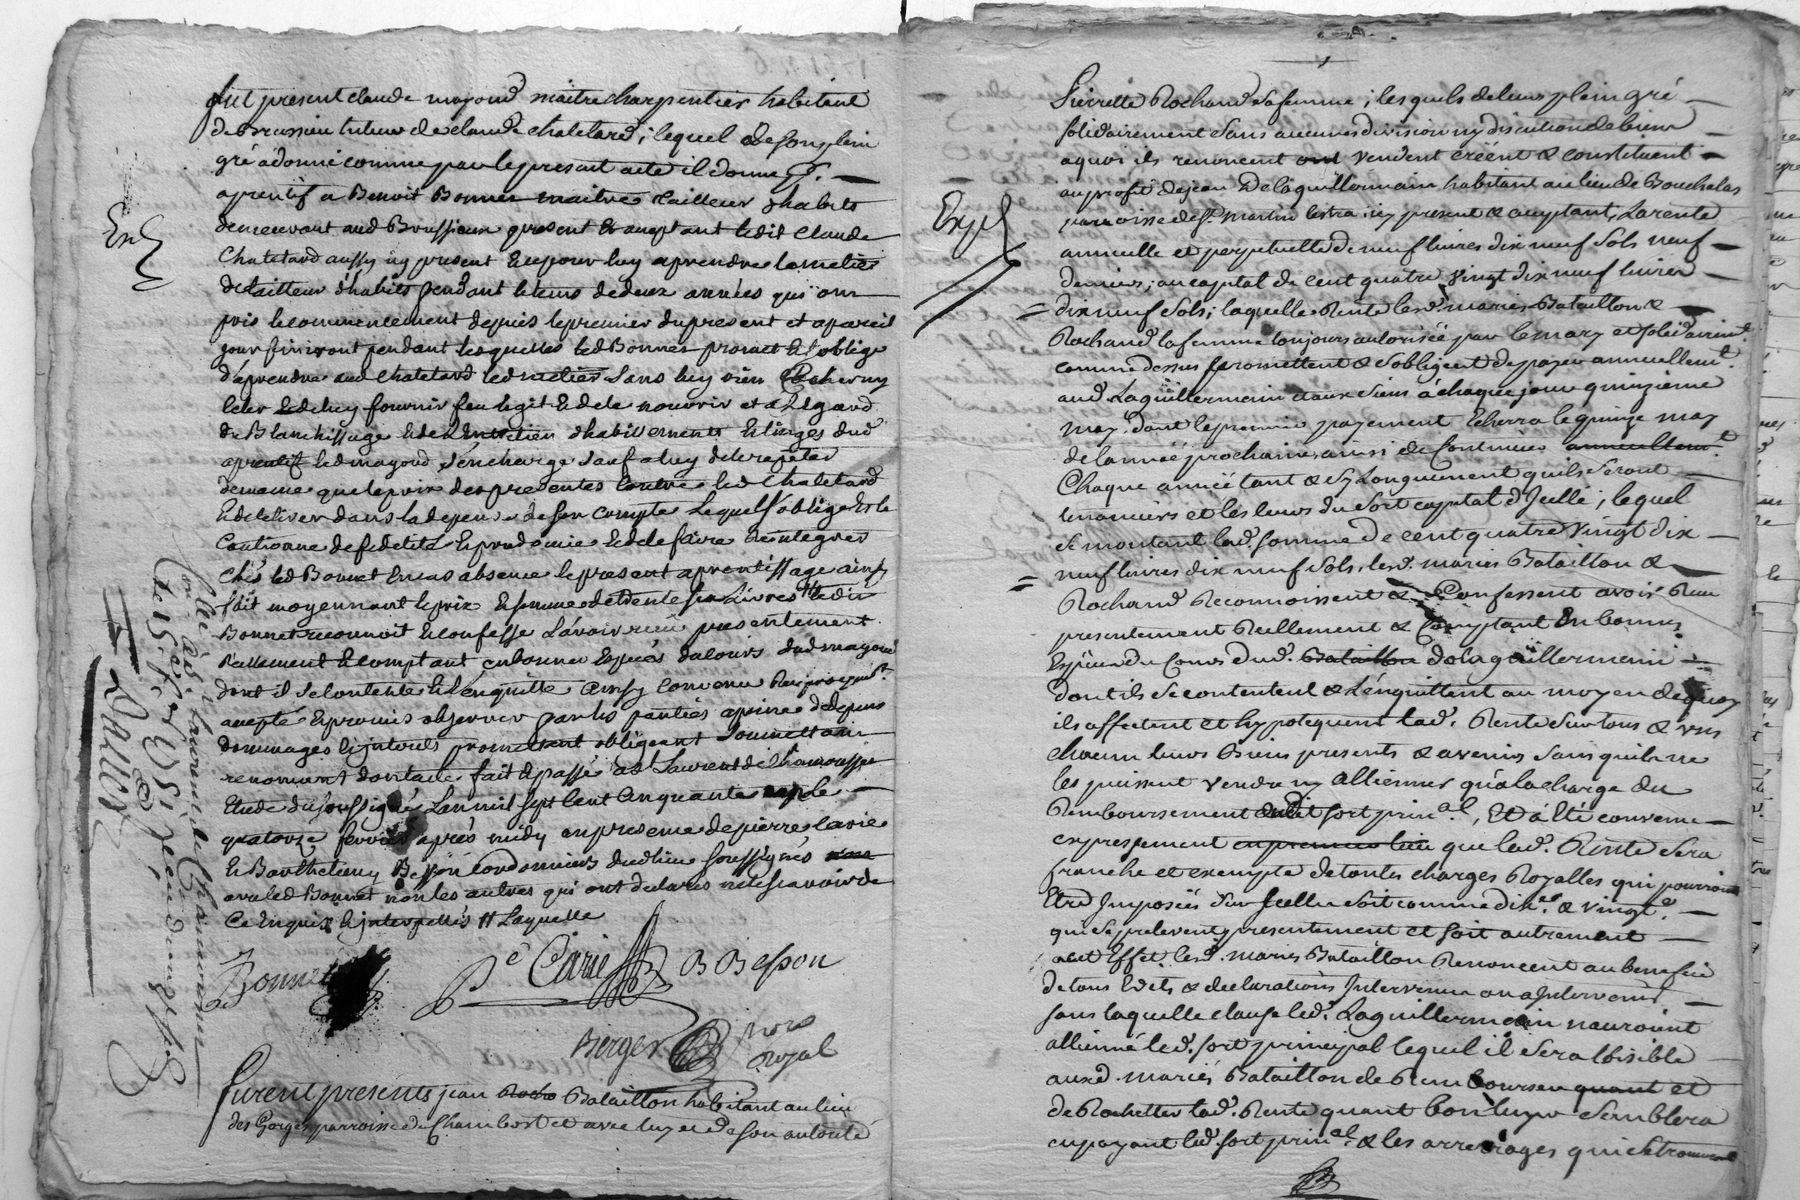 fut present claude mayoud maitre charpentier habitant
de Brussieu tuteur de claude chatelard, lequel de son plein
gré a donné comme par le present acte il donne p.r
aprentif a Benoit Bonnet maitre tailleur d'habits
demeurant aud Brussieux present & acceptant ledit Claude
Chatelard aussy icy present & pour luy aprendre le metier
de tailleur d'habits pendant le tems de deux années qui ont
pris le commencement depuis le premier du present et a pareil
jour finiront pendant lesquelles led Bonnet promet & s'oblige
d'aprendre aud Chatelard led metier sans luy rien
celer & de luy fournir feu & git & de le nourrir et a l'Egard
du Blanchissage & de l'Entretien d'habillements & linges dud
aprentif led mayoud s'en charge sauf a luy de le repeter
de meme que le prix des presentes contre led Chatelard
& de l'aliver dans la depense de son compte lequel s'oblige & le
Cautionne de fidelité & prudomie & de le faire reintegrer
chés led Bonnet en cas absence le present aprentissage ainsy
fait moyennant le prix & somme de trente six Livres que led
Bonnet reconnoit & confesse l'avoir receu presentement
reellement & comptant en bonnes Especes du cours dud mayoud
dont il se contente & l'en quitte ainsy convenu reciproquem.t
accepté & promis observer par les parties a peine de depens
dommages & interets promettent obligeant soumettant
renonceant dont acte fait & passé a S.t Laurent de Chamousset
Etude du soussigné L'an mil sept Cent Cinquante & le
quatorze fevrier après midy en presence de pierre Carie
& Barthelemy Besson cordonniers dud lieu soussignés
avec led Bonnet non les autres qui ont declarés ne le scavoir de
Ce Enquis & interpellés // Laquelle
Bonnet P.e Carie B Besson
Berger no.re
Royal
furent presents jean Bataillon habitant au lieu
des Gorges parroisse de Chambost et avec luy et de son autorité
Exp
Con.lé à S.t Laurent de Chamousset
Pierrette Rochand sa femme; lesquels de leur plein gré
solidairement sans aucunes division ny discution de biens
a quoi ils renoncent vendent créent & constituent
au profit de jean Delaguillermain habitant au lieu de Bouchalas
paroisse de S.t martin lestra icy present & acceptant, La rente
annuelle et perpetuelle de neuf livres dix neuf sols neuf
deniers; au capital de cent quatre vingt dix neuf livres
dix neuf sols; laquelle Rente lesd. mariés Bataillon &
Rochand la femme toujours autorisée par le mary et solidairem.t
comme dessus promettent & s'obligent de payer annuellem.t
aud Laguillermain ou aux siens à chaque jour quinzieme
may dont le premier payement Echerra le quinze may
de l'année prochaine ainsi de Continuer annuellem.t
Chaque année tant & sy Longuement quils seront
tenanciers et les leurs du sort capital d'Icelle; lequel
se montant lad. somme de cent quatre vingt dix
neuf livres dix neuf sols, lesd. mariés Bataillon &
Rochand Reconnoissent & Confessent avoir Receu
presentement Reellement & Comptant En bonnes
Espèces du Cours dud. Bataillon delaguillermain
dont ils se contentent & L'en quittent au moyen de quoy
ils affectent et hypotequent lad. Rente sur tous & uns
chacun leurs Biens presents & avenirs sans quils ne
les puissent vendre ny Alliener qu'a la charge du
Remboursement dudit sort prin.al, Et à Eté convenu
expressement en premier lieu que lad. Rente sera
franche et exempte de toutes charges Royalles qui pourroient
Etre Imposées sur Icelle soit comme dix.e & vingt.e
qui se prelevent presentement et soit autrement
a cet Effet lesd. mariés Bataillon Renoncent au benefice
de tous Edits & declarations Intervenus ou a Intervenir
sans laquelle clause led. Laguillermain nauroient
allienné led. sort principal lequel il sera loisible
auxd. mariés Bataillon de Rembourser quant et
de Rachetter lad. Rente quant bon leur Semblera
en payant led. sort prin.al & les arrerages qui se trouveront
Exp